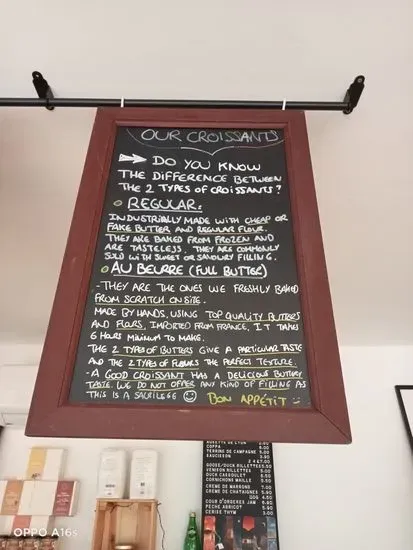 OUR CROISSANTS
DO YOU KNOW
THE DIFFERENCE BETWEEN
THE 2 TYPES OF CROISSANTS?
REGULAR.
INDUSTRIALLY MADE WITH CHEAP OR
FAKE BUTTER AND REGULAR FLOUR.
THEY ARE BAKED FROM FROZEN AND
ARE TASTELESS. THEY ARE COMMONLY
SOLD WITH SWEET OR SAVOURY FILLING.
AU BEURRE (FULL BUTTER)
- THEY ARE THE ONES WE FRESHLY BAKED
FROM SCRATCH ON SITE.
MADE BY HANDS, USING TOP QUALITY BUTTERS
AND FLOURS, IMPORTED FROM FRANCE. IT TAKES
6 HOURS MINIMUM TO MAKE.
THE 2 TYPES OF BUTTERS GIVE A PARTICULAR TASTE
AND THE 2 TYPES OF FLOURS THE PERFECT TEXTURE.
- A GOOD CROISSANT HAS A DELICIOUS BUTTERY
TASTE. WE DO NOT OFFER ANY KIND OF FILLING AS
THIS IS A SACRILEGE ☺ BON APPÉTIT :-
ROSETTE DE LYON
COPPA
TERRINE DE CAMPAGNE
SAUCISSON
GOOSE/DUCK RILLETTES
VENISON RILLETTES
DUCK CASSOULET
CORNICHONS MAILLE
CREME DE MARRONS
CREME DE CHATAIGNES
COUP D'ORGERES JAM
PECHE ABRICOT
CERISE THYM
OPPO A16s